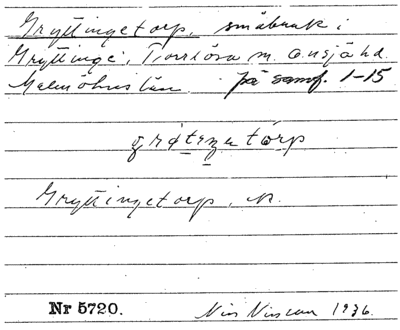 Gryttingetorp, småbruk i
Gryttinge, Torrlösa sn. Onsjö hd.
Malmöhus län. på samf. 1-15
Gryttingetorp, n.
Nr 5720. Nils Nilsson 1936.